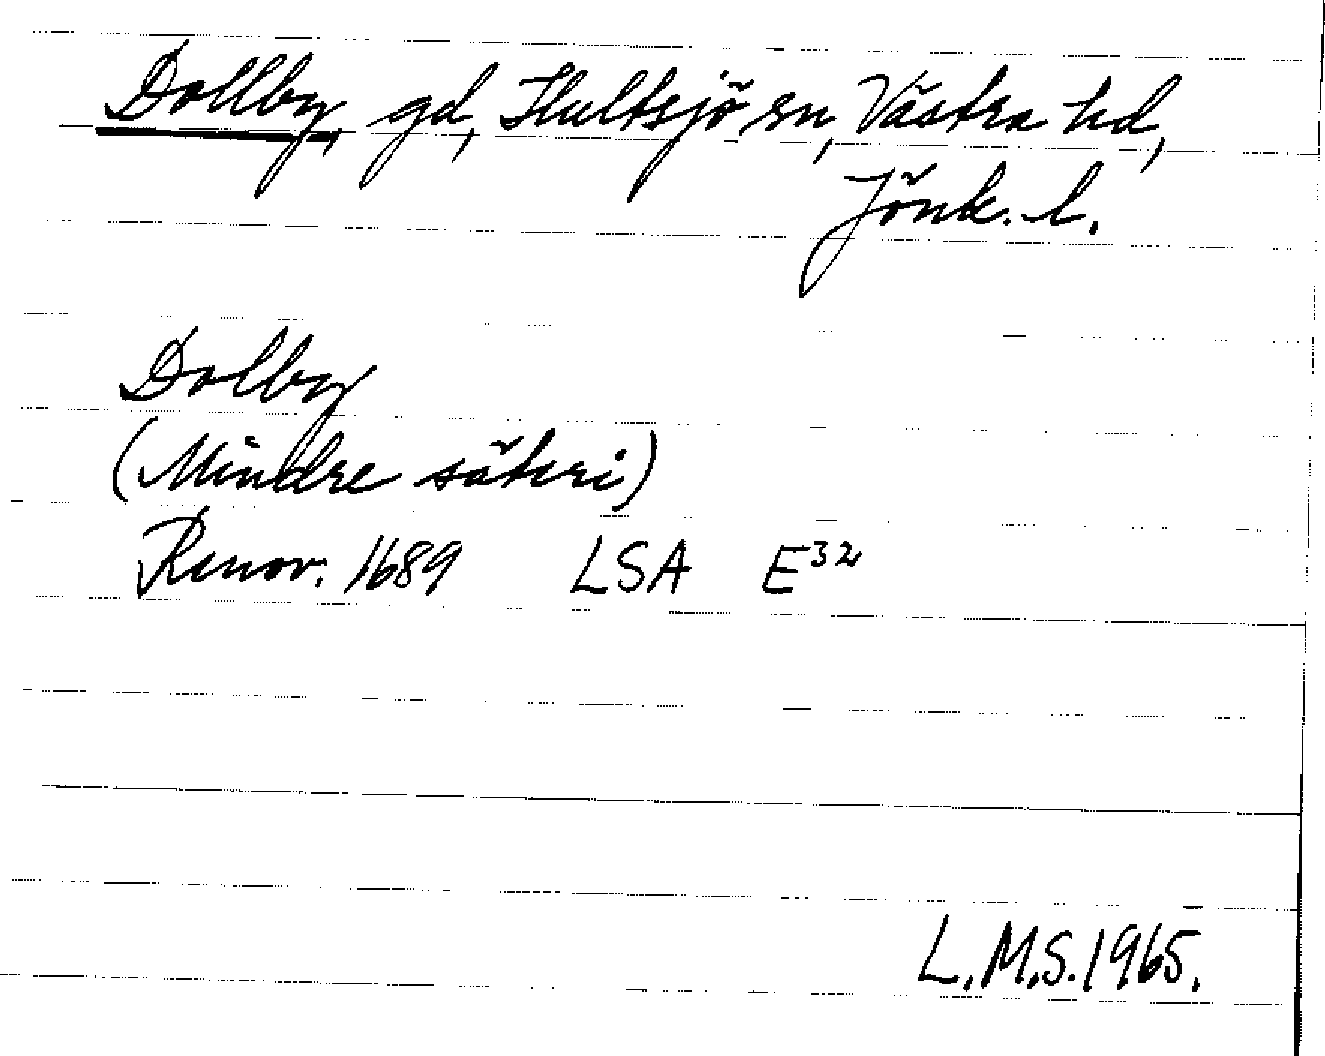 Dollby, gd, Hultsjö sn, Västra hd,
Jönk. l.
Dolby
(Mindre säteri)
Renov. 1689 LSA E³²
L.M.S. 1965.